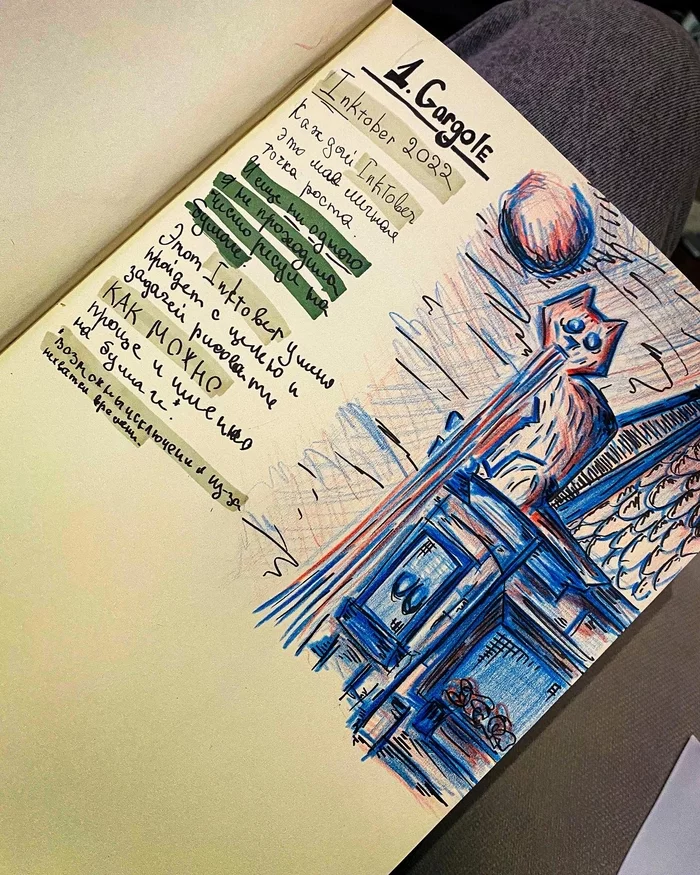 1. Gargole
Inktober 2022
Каждый Inktober
это моя личная
точка роста.
И еще ни одного
я не проходила
чисто рисуя на
бумаге.
Этот Inktober у меня
пройдет с целью и
задачей рисовать
КАК МОЖНО
проще и именно
на бумаге.
Возможны исключения из-за
нехватки времени.